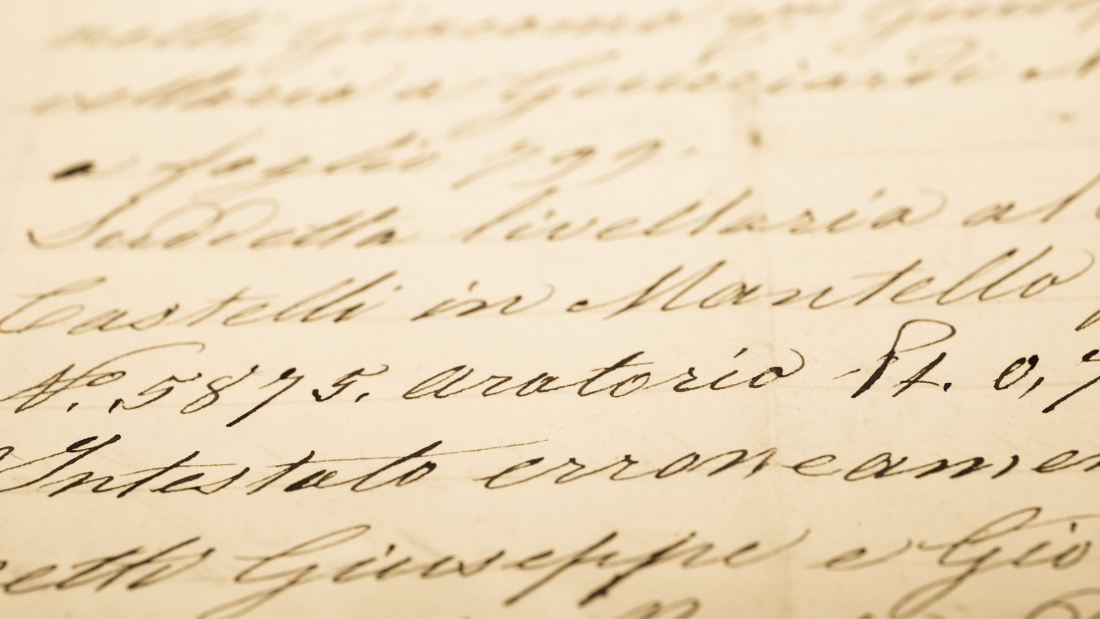 Giacomo
livellario a Guicciardi
a foglio 799.
Suddetta livellaria al
Castelli in Mantello
N.º 5875. Aratorio Pt. 0,7
Intestato erroneamen
Giuseppe e Gio